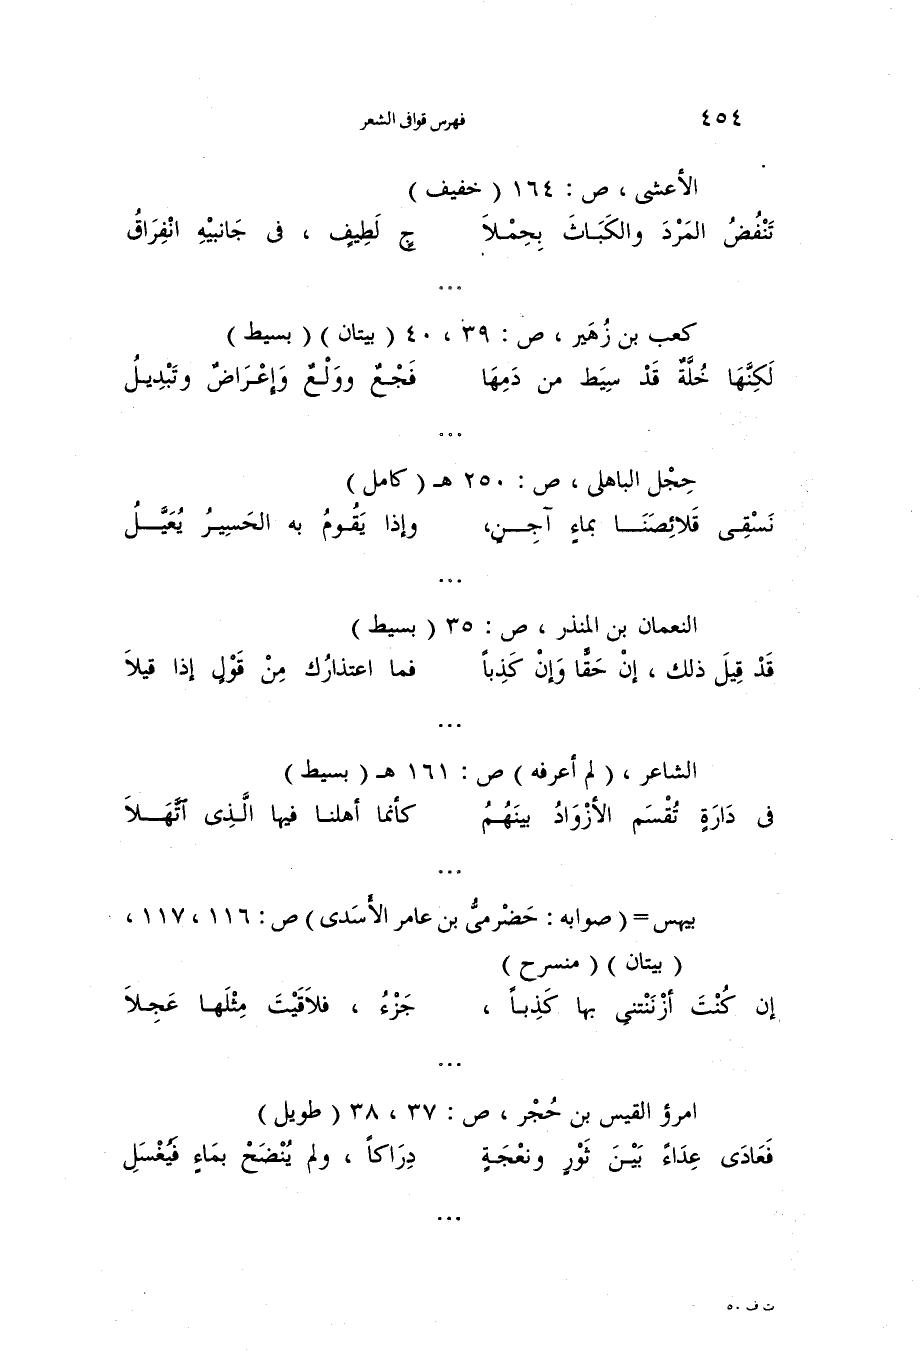 ٤٥٤ فهرس قوافى الشعر
الأعشى ، ص : ١٦٤ ( خفيف )
تَنْفُضُ المَرْدَ والكَبَاثَ بِحِمْلاَ جٍ لَطِيفٍ ، فى جَانبيْهِ انْفِرَاقُ
...
كعب بن زُهَير ، ص : ٣٩ ، ٤٠ ( بيتان ) ( بسيط )
لَكِنَّهَا خُلَّةٌ قَدْ سِيَط من دَمِهَا فَجْعٌ ووَلْعٌ وَإِعْرَاضٌ وتَبْدِيلُ
...
حِجْل الباهلى ، ص : ٢٥٠ هـ ( كامل )
نَسْقِى قَلائِصَنَا بماءٍ آجِنٍ، وإذا يَقُومُ به الحَسِيرُ يُعَيَّلُ
...
النعمان بن المنذر ، ص : ٣٥ ( بسيط )
قَدْ قِيلَ ذلك ، إنْ حَقًّا وَإنْ كَذِباً فما اعتذارُك مِنْ قَوْلٍ إذا قيلاَ
...
الشاعر ، ( لم أعرفه ) ص : ١٦١ هـ ( بسيط )
فى دَارَةٍ تُقْسَم الأزْوَادُ بينَهُمُ كأنما أهلنا فيها الَّذِى اتَّهَلاَ
...
بيهس = ( صوابه : حَضْرمىُّ بن عامر الأَسَدى ) ص : ١١٦ ، ١١٧ ،
( بيتان ) ( منسرح )
إن كُنْتَ أزْنَنْتنىِ بها كَذِباً ، جَزْءُ ، فلاَقَيْتَ مِثْلَها عَجِلاَ
...
امرؤ القيس بن حُجْر ، ص : ٣٧ ، ٣٨ ( طويل )
فَعَادَى عِدَاءً بَيْنَ ثَوْرٍ ونعْجَةٍ دِرَاكاً ، ولم يُنْضَحْ بمَاءٍ فَيُغْسَلِ
...
ت ف ٥٠